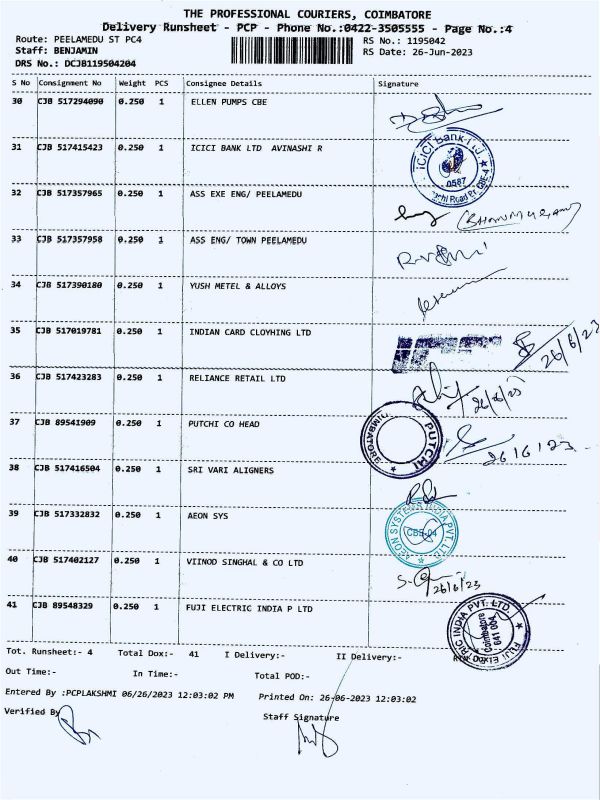 THE PROFESSIONAL COURIERS, COIMBATORE
Delivery Runsheet - PCP - Phone No.:0422-3505555 - Page No.:4
Route: PEELAMEDU ST PC4
RS No.: 1195042
Staff: BENJAMIN
RS Date: 26-Jun-2023
DRS No.: DCJB119504204
S No Consignment No Weight PCS Consignee Details Signature
30 CJB 517294090 0.250 1 ELLEN PUMPS CBE
31 CJB 517415423 0.250 1 ICICI BANK LTD AVINASHI R
ICICI Bank Ltd
0587
CBE-4
32 CJB 517357965 0.250 1 ASS EXE ENG/ PEELAMEDU
33 CJB 517357958 0.250 1 ASS ENG/ TOWN PEELAMEDU
34 CJB 517390180 0.250 1 YUSH METEL & ALLOYS
35 CJB 517019781 0.250 1 INDIAN CARD CLOYHING LTD
26/6/23
36 CJB 517423283 0.250 1 RELIANCE RETAIL LTD
26/6/23
37 CJB 89541909 0.250 1 PUTCHI CO HEAD
PUTCHI
26/6/23
38 CJB 517416504 0.250 1 SRI VARI ALIGNERS
39 CJB 517332832 0.250 1 AEON SYS
AEON SYSTEMS INDIA PVT. LTD.
CBE-04
40 CJB 517402127 0.250 1 VIINOD SINGHAL & CO LTD
26/6/23
41 CJB 89548329 0.250 1 FUJI ELECTRIC INDIA P LTD
FUJI ELECTRIC INDIA PVT. LTD.
Coimbatore
641 004
Tot. Runsheet:- 4 Total Dox:- 41 I Delivery:- II Delivery:-
Out Time:- In Time:- Total POD:-
Entered By :PCPLAKSHMI 06/26/2023 12:03:02 PM Printed On: 26-06-2023 12:03:02
Verified By
Staff Signature